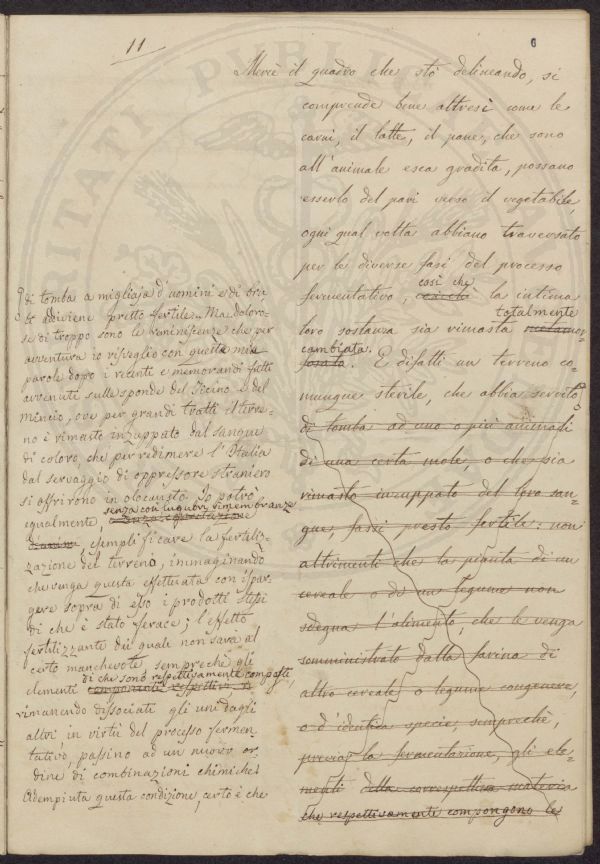 11
6
Mercè il quadro che stò delineando, si
comprende bene altresì come le
carni, il latte, il pane, che sono
all'animale esca gradita, possano
esserlo del pari verso il vegetabile,
ogni qual volta abbiano traversato
per le diverse fasi del processo
così che
fermentativo, la intima
totalmente
loro sostanza sia rimasta metamor-
cambiata.
fosata. E difatti un terreno co-
munque sterile, che abbia servito
di tomba ad uno o più animali
di una certa mole, o che sia
rimasto inzuppato del loro san-
gue, fassi presto fertile: non
altrimenti che la pianta di un
cereale o di un legume non
sdegna l'alimento, che le venga
somministrato dalla farina di
altro cereale o legume congenere,
o d'identica specie, sempreché,
previa la fermentazione, gli ele-
menti della correspettiva materia
che respettivamente compongono le
di tomba a migliaja d'uomini e di bru-
ti addiviene presto fertile. Ma doloro-
se di troppo sono le reminiscenze che per
avventura io risveglio con queste mie
parole dopo i recenti e memorandi fatti
avvenuti sulle sponde del Ticino e del
Mincio, ove per grandi tratti il terre-
no è rimasto inzuppato dal sangue
di coloro, che per redimere l'Italia
dal servaggio di oppressore straniero
si offrirono in olocausto. Io potrò
senza così lugubri rimembranze
egualmente,
semplificare la fertiliz-
zazione del terreno, immaginando
che venga questa effettuata con ispar-
gere sopra di esso i prodotti stessi
di che è stato ferace; l'effetto
fertilizzante dei quale non sarà al
certo manchevole, sempreché gli
di che sono respettivamente composti,
elementi componenti respettivi, si
rimanendo dissociati gli uni dagli
altri in virtù del processo fermen-
tativo, passino ad un nuovo or-
dine di combinazioni chimiche.
Adempiuta questa condizione, certo è che